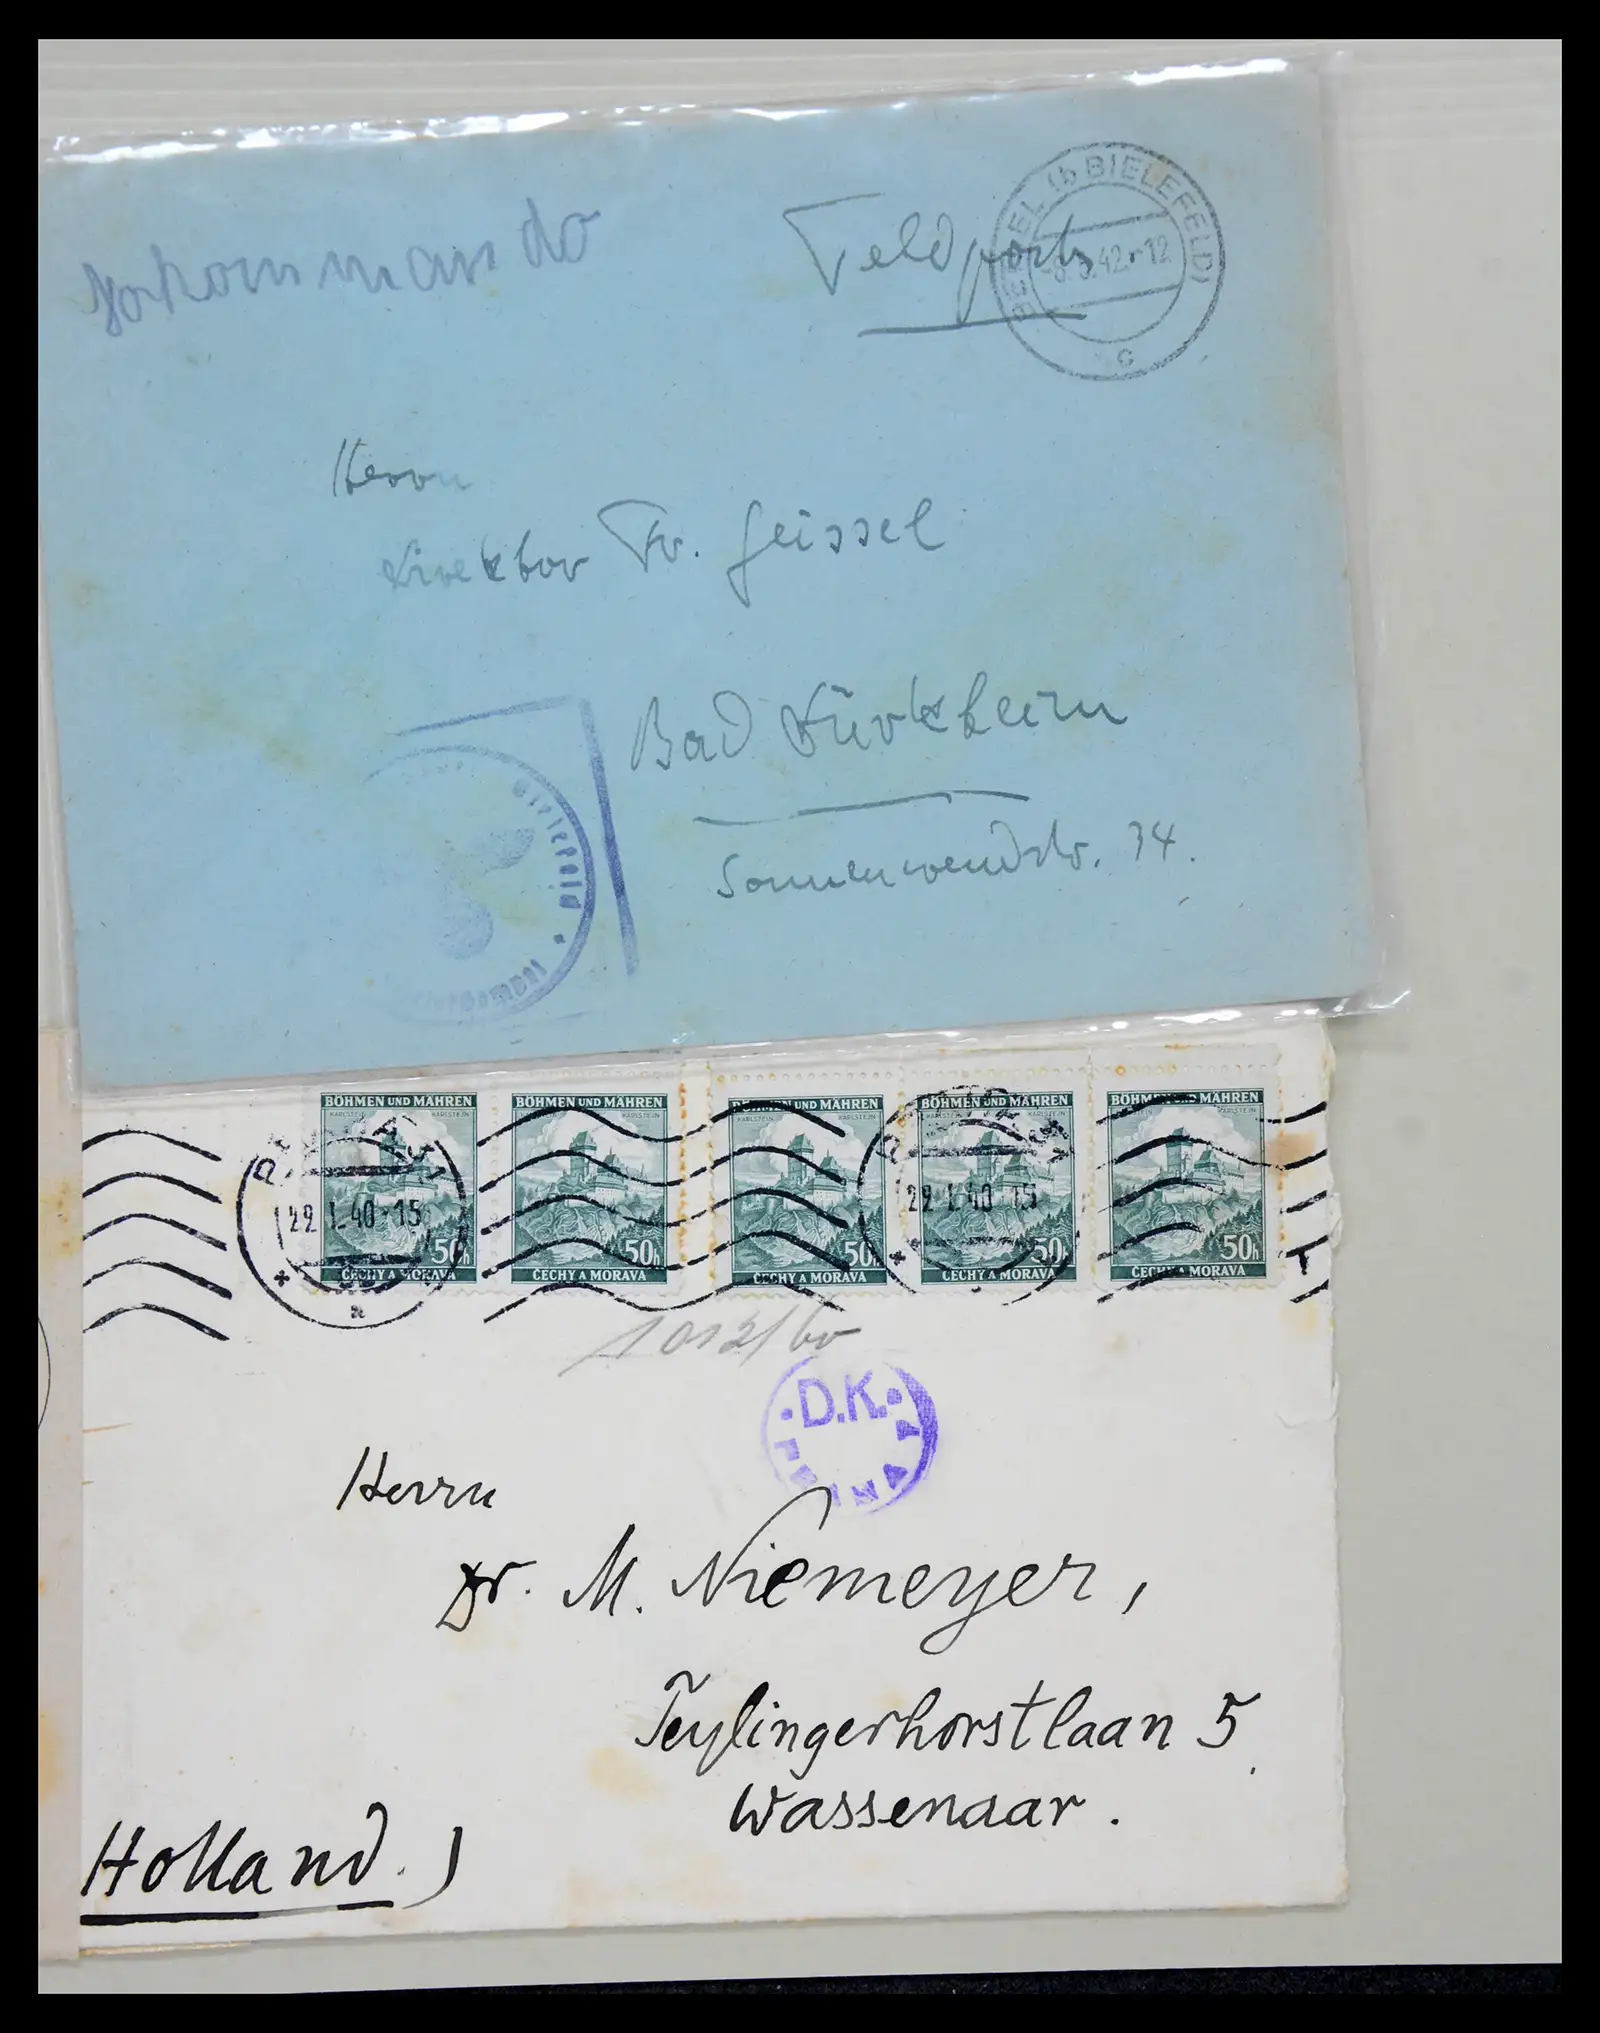 Vorkommando
Feldpost
(b BIELEFELD)
42-12
c
Herrn
Direktor Fr. Geissel
Bad Dürkheim
Sonnenwendstr. 34.
Bielefeld
BÖHMEN UND MÄHREN BÖHMEN UND MÄHREN BÖHMEN UND MÄHREN BÖHMEN UND MÄHREN BÖHMEN UND MÄHREN
KARLSTEIN KARLŠTEJN KARLSTEIN KARLSTEIN KARLSTEIN KARLŠTEJN
29. I. 40-15 29. I. 40-15
50h 50h 50h 50h 50h
ČECHY A MORAVA ČECHY A MORAVA ČECHY A MORAVA ČECHY A MORAVA ČECHY A MORAVA
a
D.K.
Herrn
Dr. M. Niemeyer,
Teylingerhorstlaan 5.
Wassenaar.
Holland.)